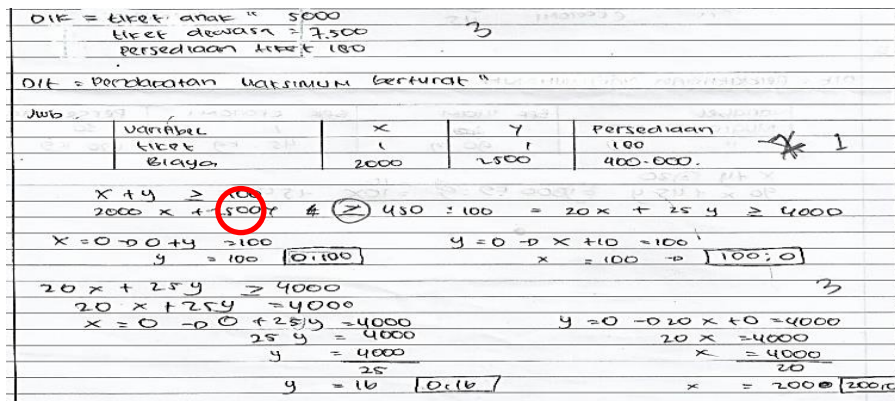 DIK = tiket anak" 5000
tiket dewasa = 7.500 3
persediaan tiket 180
Dit = Pendapatan maksimum berturut"
Jwb.
Variabel x y Persediaan
tiket 1 1 100
Biaya 2000 2500 400.000. 1
x + y ≥ 100
2000 x + 2500 y ≥ 450 : 100 = 20x + 25 y ≥ 4000
x = 0 → 0 + y = 100 y = 0 → x + 10 = 100
y = 100 0:100 x = 100 → 100:0
20 x + 25 y ≥ 4000 3
20 x + 25y = 4000
x = 0 → 0 + 25y = 4000 y = 0 → 20 x + 0 = 4000
25 y = 4000 20 x = 4000
y = 4000 x = 4000
25 20
y = 16 0:16 x = 2000